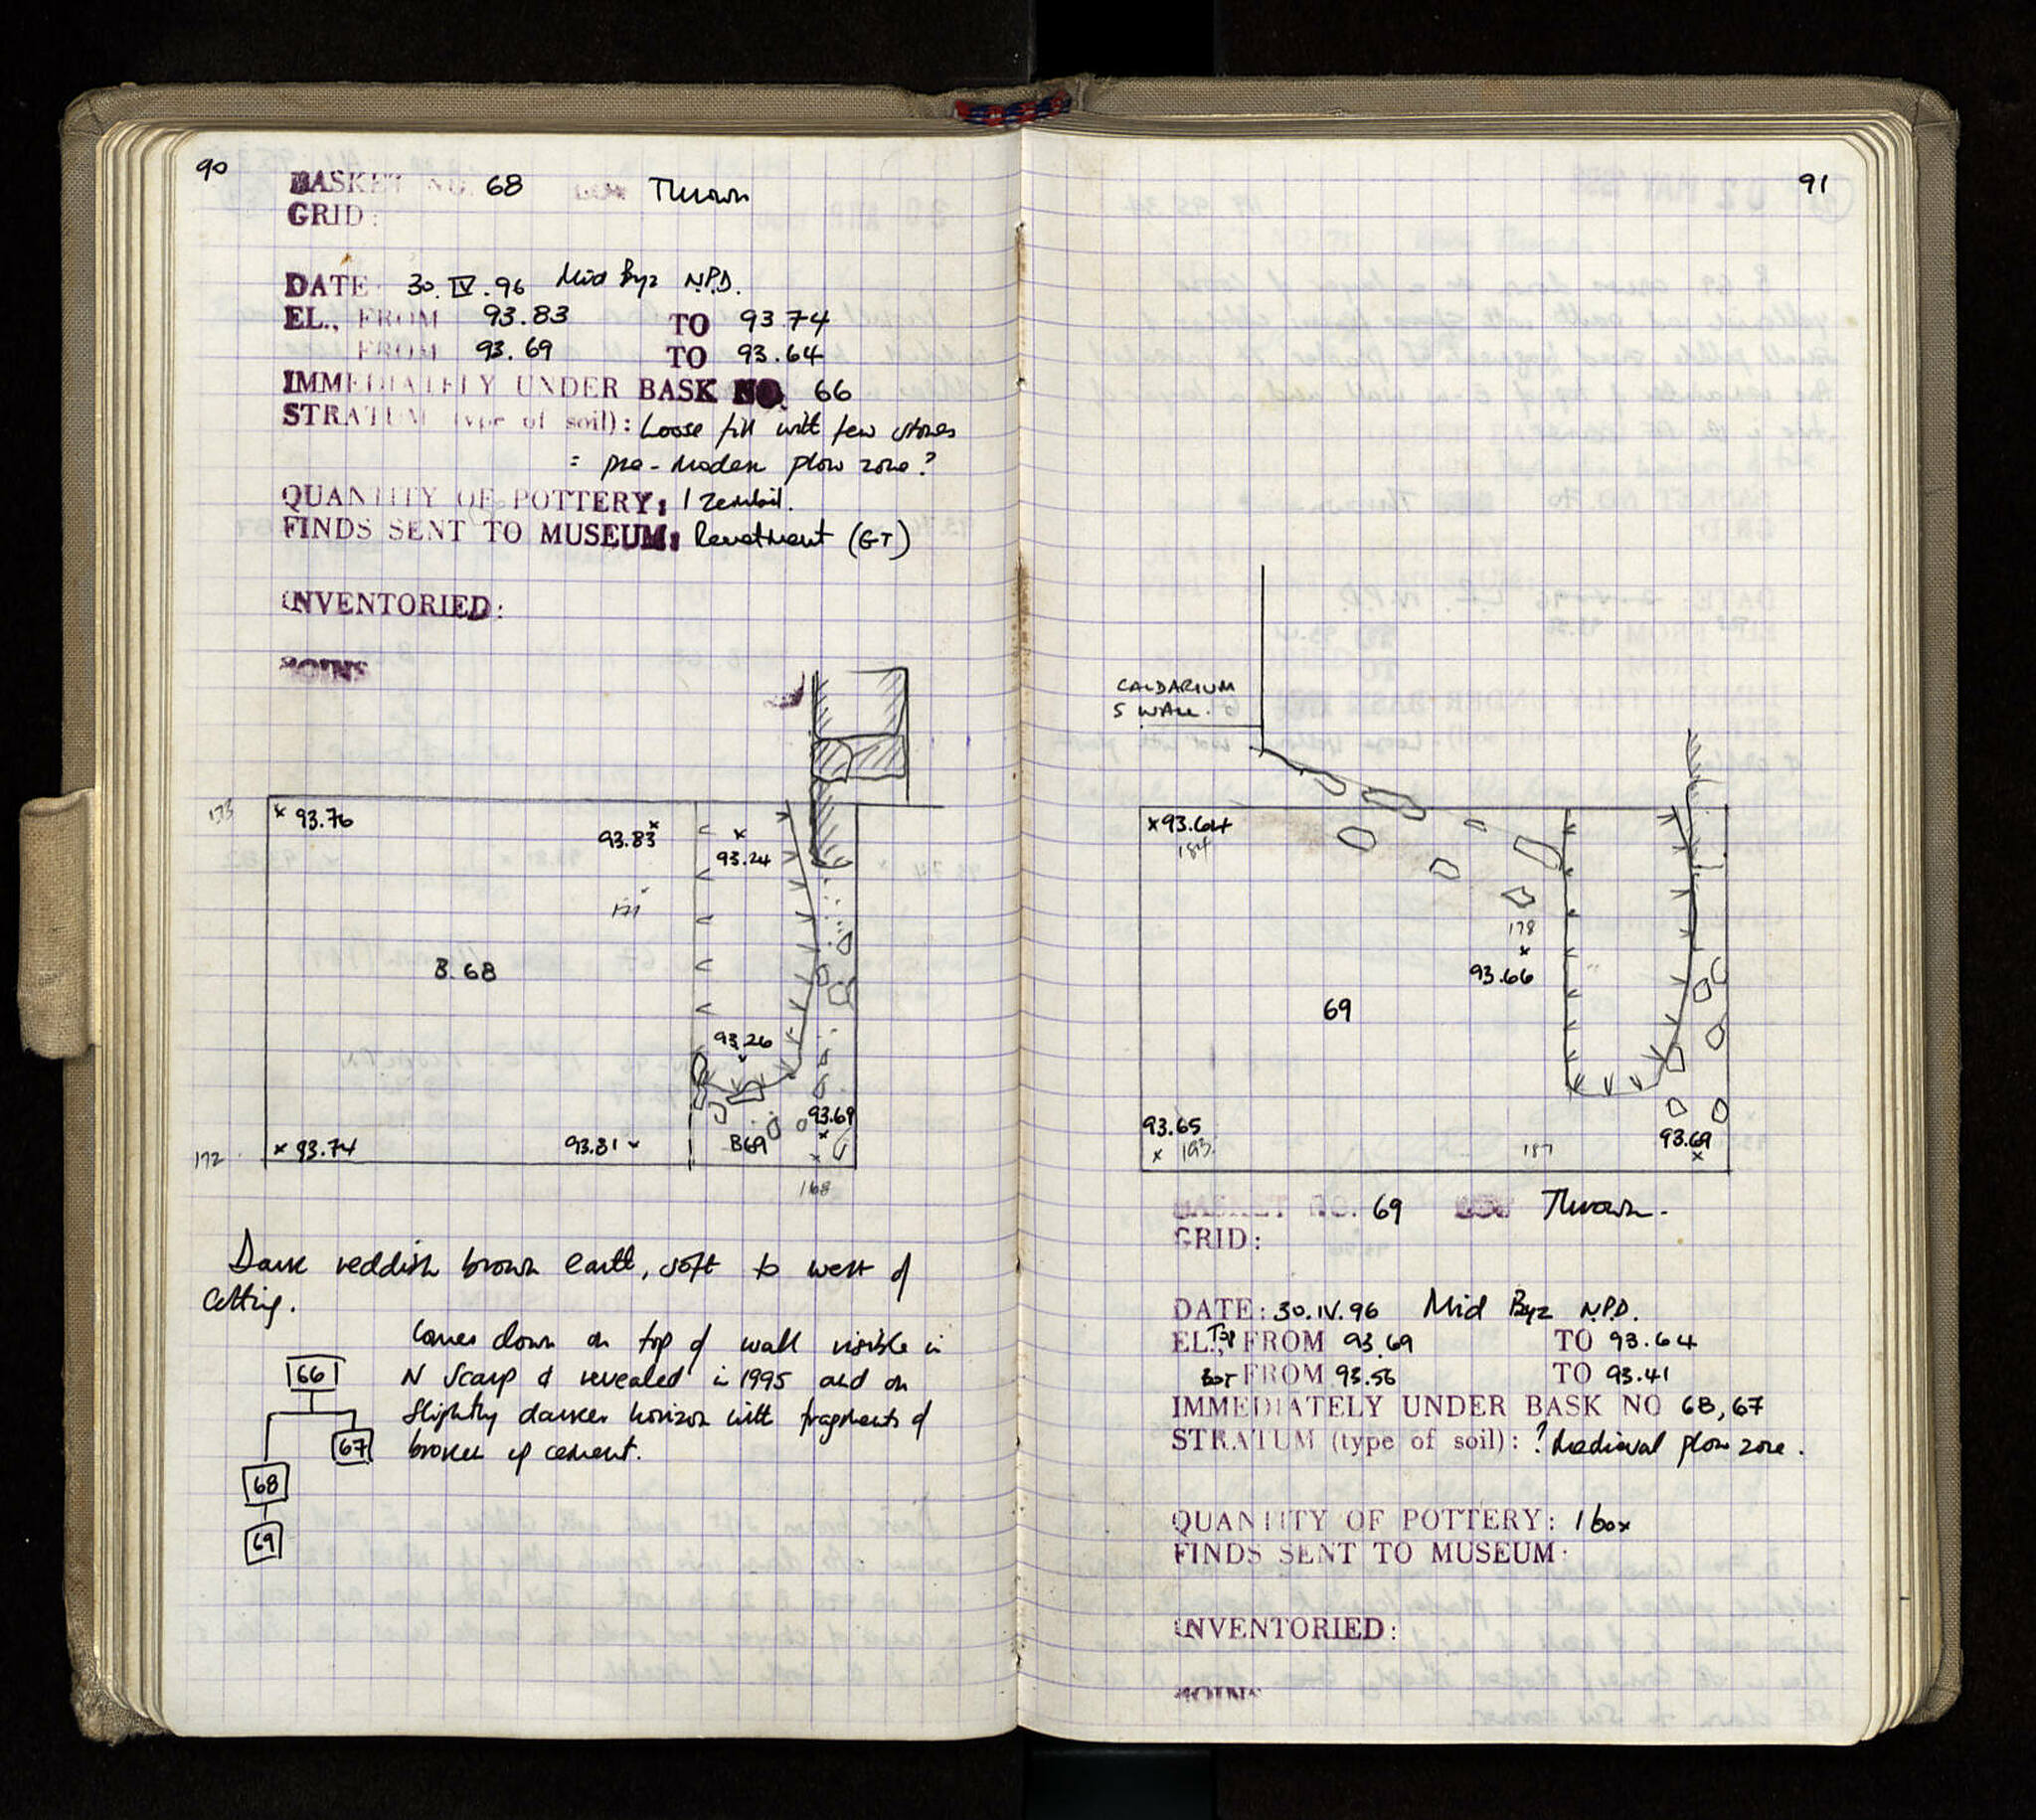 90
BASKET NO. 68 Thrown
GRID:
DATE: 30.IV.96 Mid Byz N.P.D.
EL., FROM 93.83 TO 93.74
FROM 93.69 TO 93.64
IMMEDIATELY UNDER BASK NO. 66
STRATUM (type of soil): Loose fill with few stones
= pre-modern plow zone?
QUANTITY OF POTTERY: 1 zembil.
FINDS SENT TO MUSEUM: Revetment (GT)
INVENTORIED:
JOINS
173
x 93.76
93.83 x
x
93.24
171
B.68
93.26
93.69
x
172
x 93.74
93.81 x
B69
168
Dark reddish brown earth, soft to west of
cutting.
Comes down on top of wall visible in
N scarp & revealed in 1995 and on
slightly darker horizon with fragments of
broken up cement.
66
67
68
69
91
CALDARIUM
S WALL.
x 93.64
184
178
x
93.66
69
93.65
x 193
187
93.69
x
BASKET NO. 69 Thrown.
GRID:
DATE: 30.IV.96 Mid Byz N.P.D.
EL., Top FROM 93.69 TO 93.64
BOT FROM 93.56 TO 93.41
IMMEDIATELY UNDER BASK NO 68, 67
STRATUM (type of soil): ? Medieval plow zone.
QUANTITY OF POTTERY: 1 box
FINDS SENT TO MUSEUM:
INVENTORIED:
JOINS